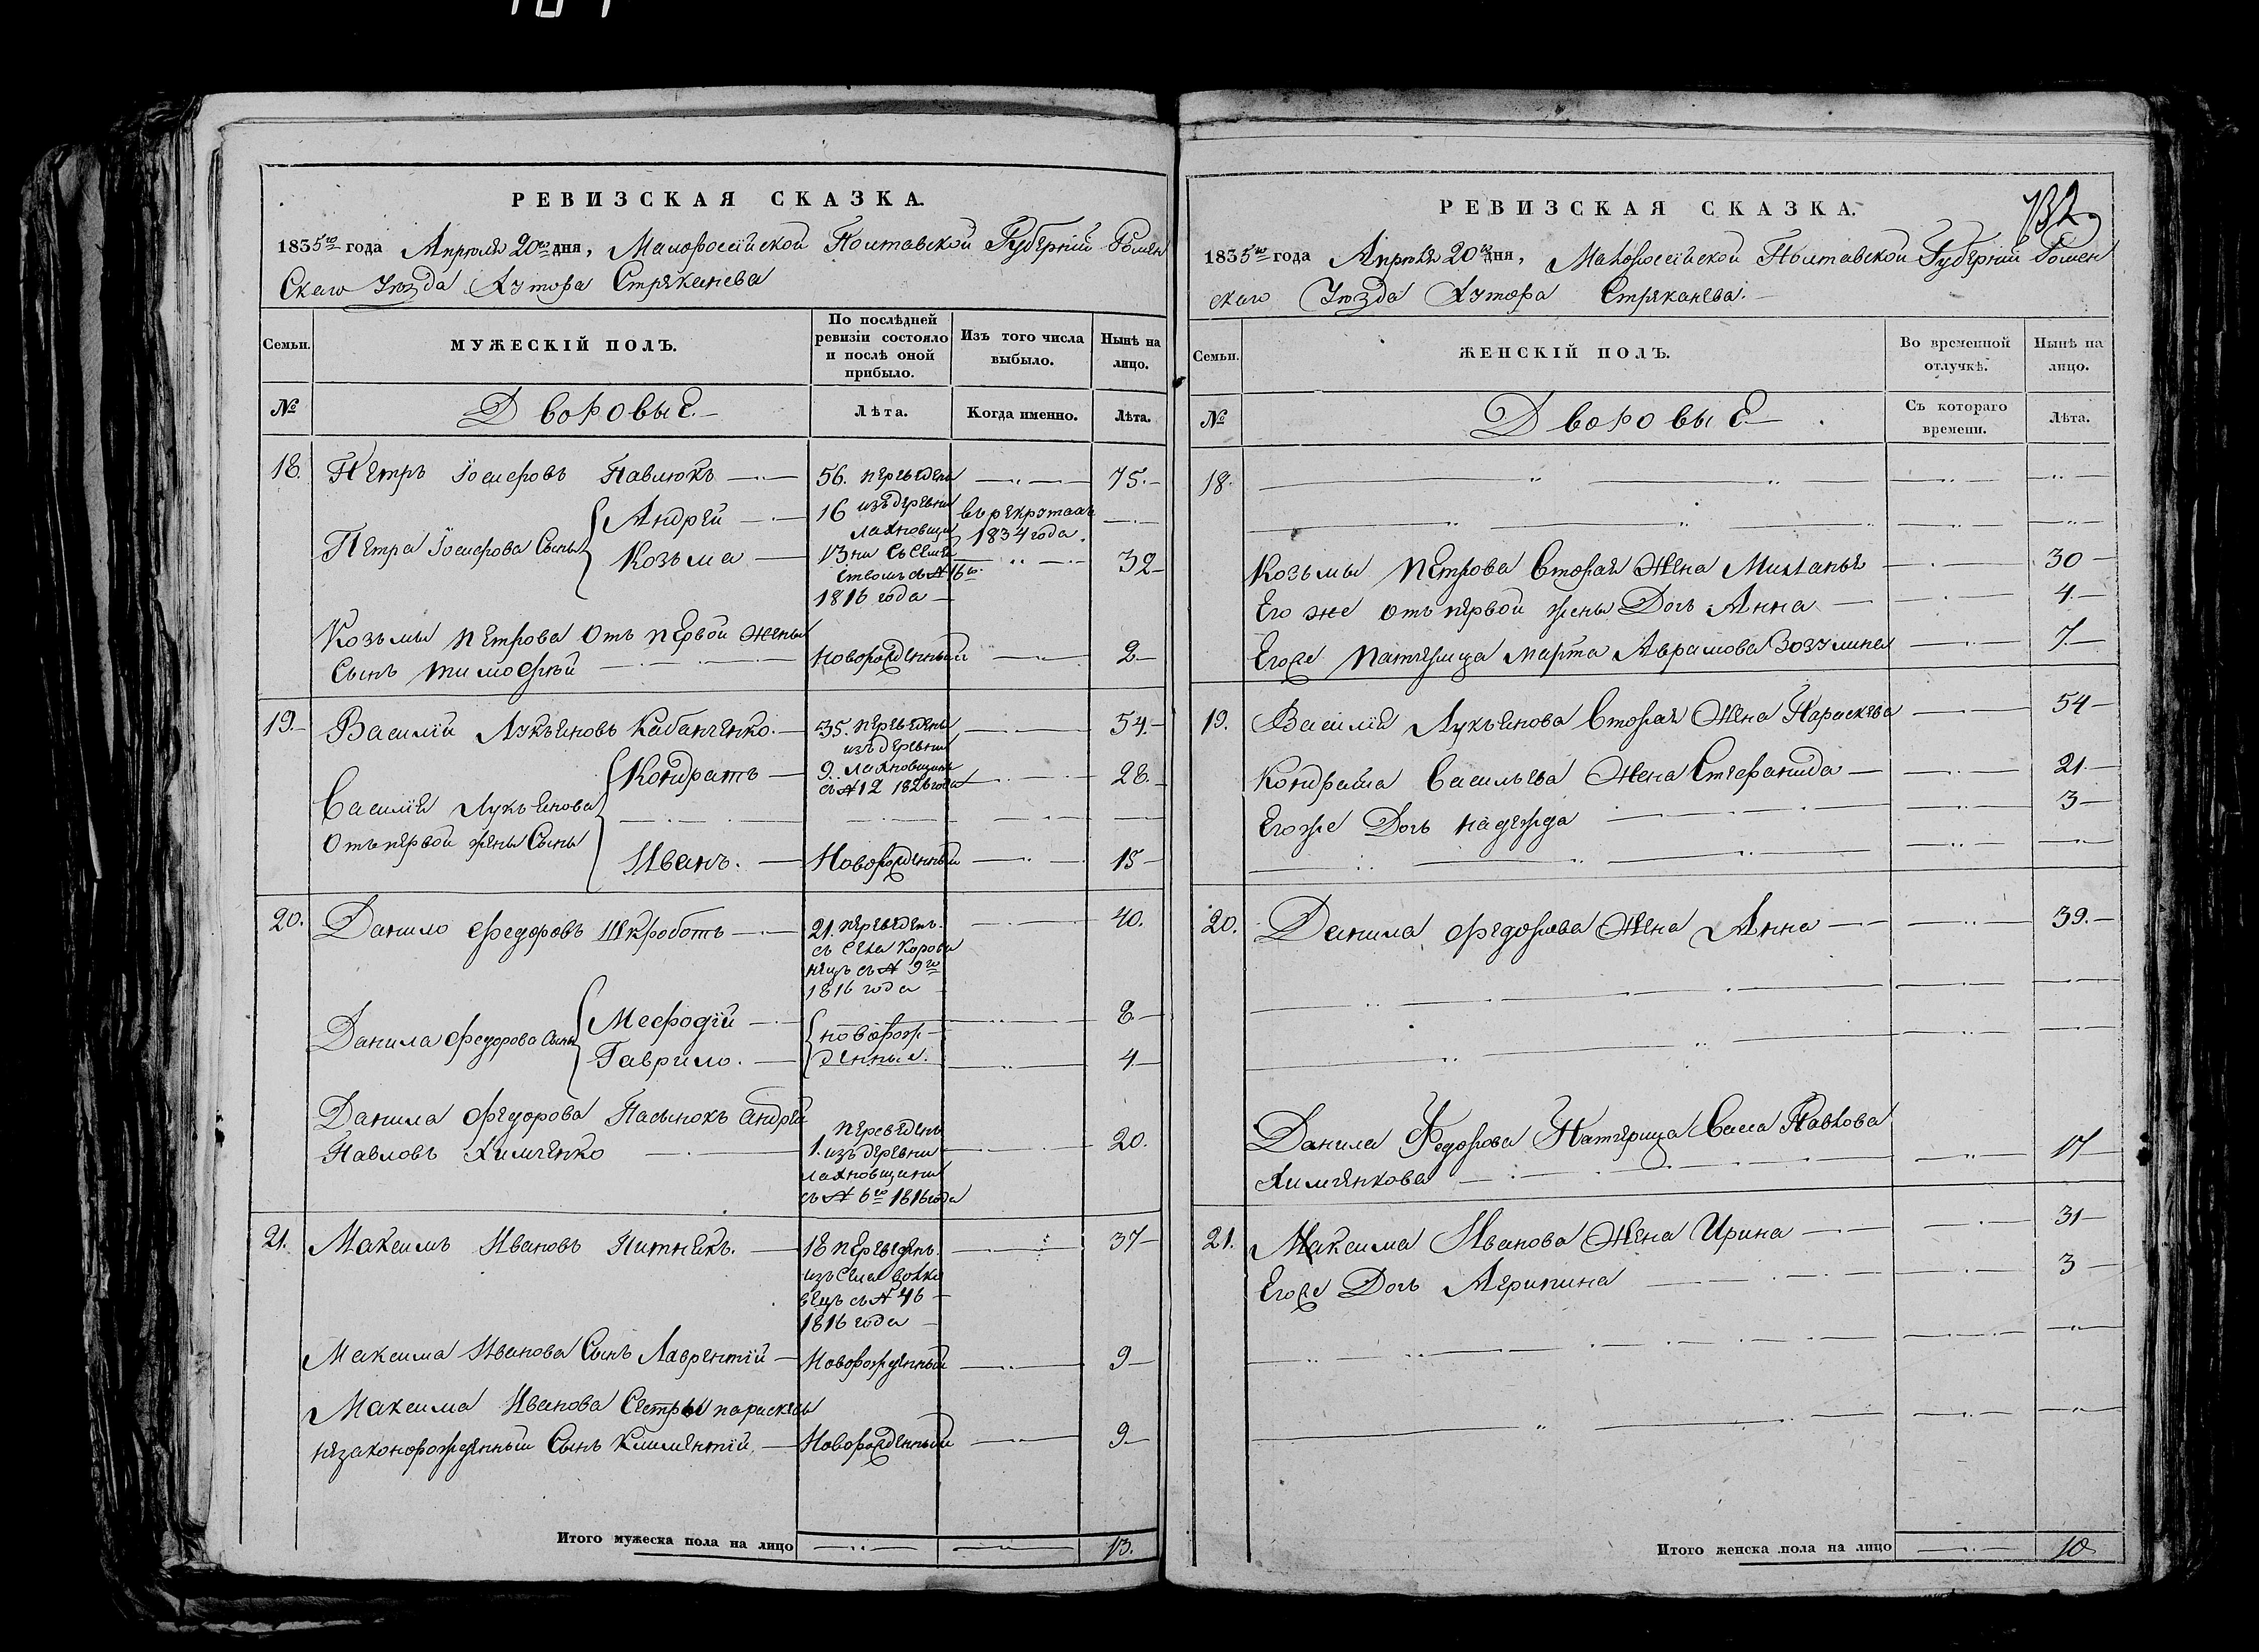 РЕВИЗСКАЯ СКАЗКА.
1835го года Апреля 20го дня, Малороссійской Полтавской Губерніи Ромен
скаго Уѣзда Хутора Стрякачева
Семьи.
МУЖЕСКІЙ ПОЛЪ.
По послѣдней ревизіи состояло и послѣ оной прибыло.
Изъ того числа выбыло.
Нынѣ на лицо.
№
Дворовые.
Лѣта.
Когда именно.
Лѣта.
18. Петръ Іосифовъ Павлюкъ 56. переведенъ 75.
Петра Іосифова Сыны
Андрей 16 изъ деревни Лахновщи въ рекрутахъ 1834 года.
Козьма 13. ни съ семей 32
ствомъ съ № 16го
1816 года
Козьмы Петрова отъ первой жены
Сынъ Тимофѣй Новорожденный 2
19. Василій Лукьяновъ Кабанченко. 35. переведены 54.
изъ деревни
Василія Лукьянова
Отъ первой жены Сыны
Кондратъ 9. Лахновщины 28.
съ № 12 1826 года
Иванъ. Новорожденный 15
20. Данило Федоровъ Шкроботъ 21. переведенъ. 40.
съ села Корови
нецъ съ № 9го
1816 года
Данила Федорова Сыны
Мефодій 8.
Гаврило. 4
новорож
денные.
Данила Федорова Пасынокъ Андрей переведенъ
Павловъ Химченко 1. изъ деревни 20.
Лахновщины
съ № 6го 1816 года
21. Максимъ Ивановъ Питнекъ. 18 переведенъ. 37
изъ села Волко
вецъ съ № 46
1816 года
Максима Иванова Сынъ Лаврентій Новорожденный 9
Максима Иванова Сестры Параскевы
незаконорожденный Сынъ Климентій. Новорожденный 9
Итого мужеска пола на лицо 13.
132
РЕВИЗСКАЯ СКАЗКА.
1835го года Апреля 20го дня, Малороссійской Полтавской Губерніи Ромен
скаго Уѣзда Хутора Стрякачева.
Семьи.
ЖЕНСКІЙ ПОЛЪ.
Во временной отлучкѣ.
Нынѣ на лицо.
№
Дворовые
Съ котораго времени.
Лѣта.
18.
Козьмы Петрова вторая жена Миланья 30
Его же отъ первой жены Дочь Анна 4
Егоже Патчерица Марта Аврамова 7
19. Василія Лукьянова вторая жена Параскева 54
Кондрата Васильева жена Стефанида 21
Егоже Дочь Надежда 3
20. Данила Федорова жена Анна 39.
Данила Федорова Патчерица Павлова
Химченкова 17
21. Максима Иванова жена Ирина 31
Егоже Дочь Агрипина 3
Итого женска пола на лицо 10